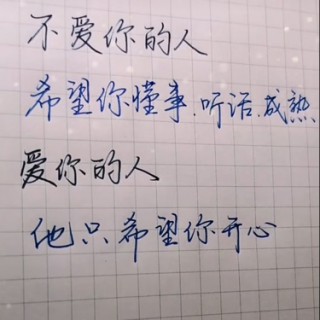 不爱你的人
希望你懂事.听话.成熟
爱你的人
他只希望你开心